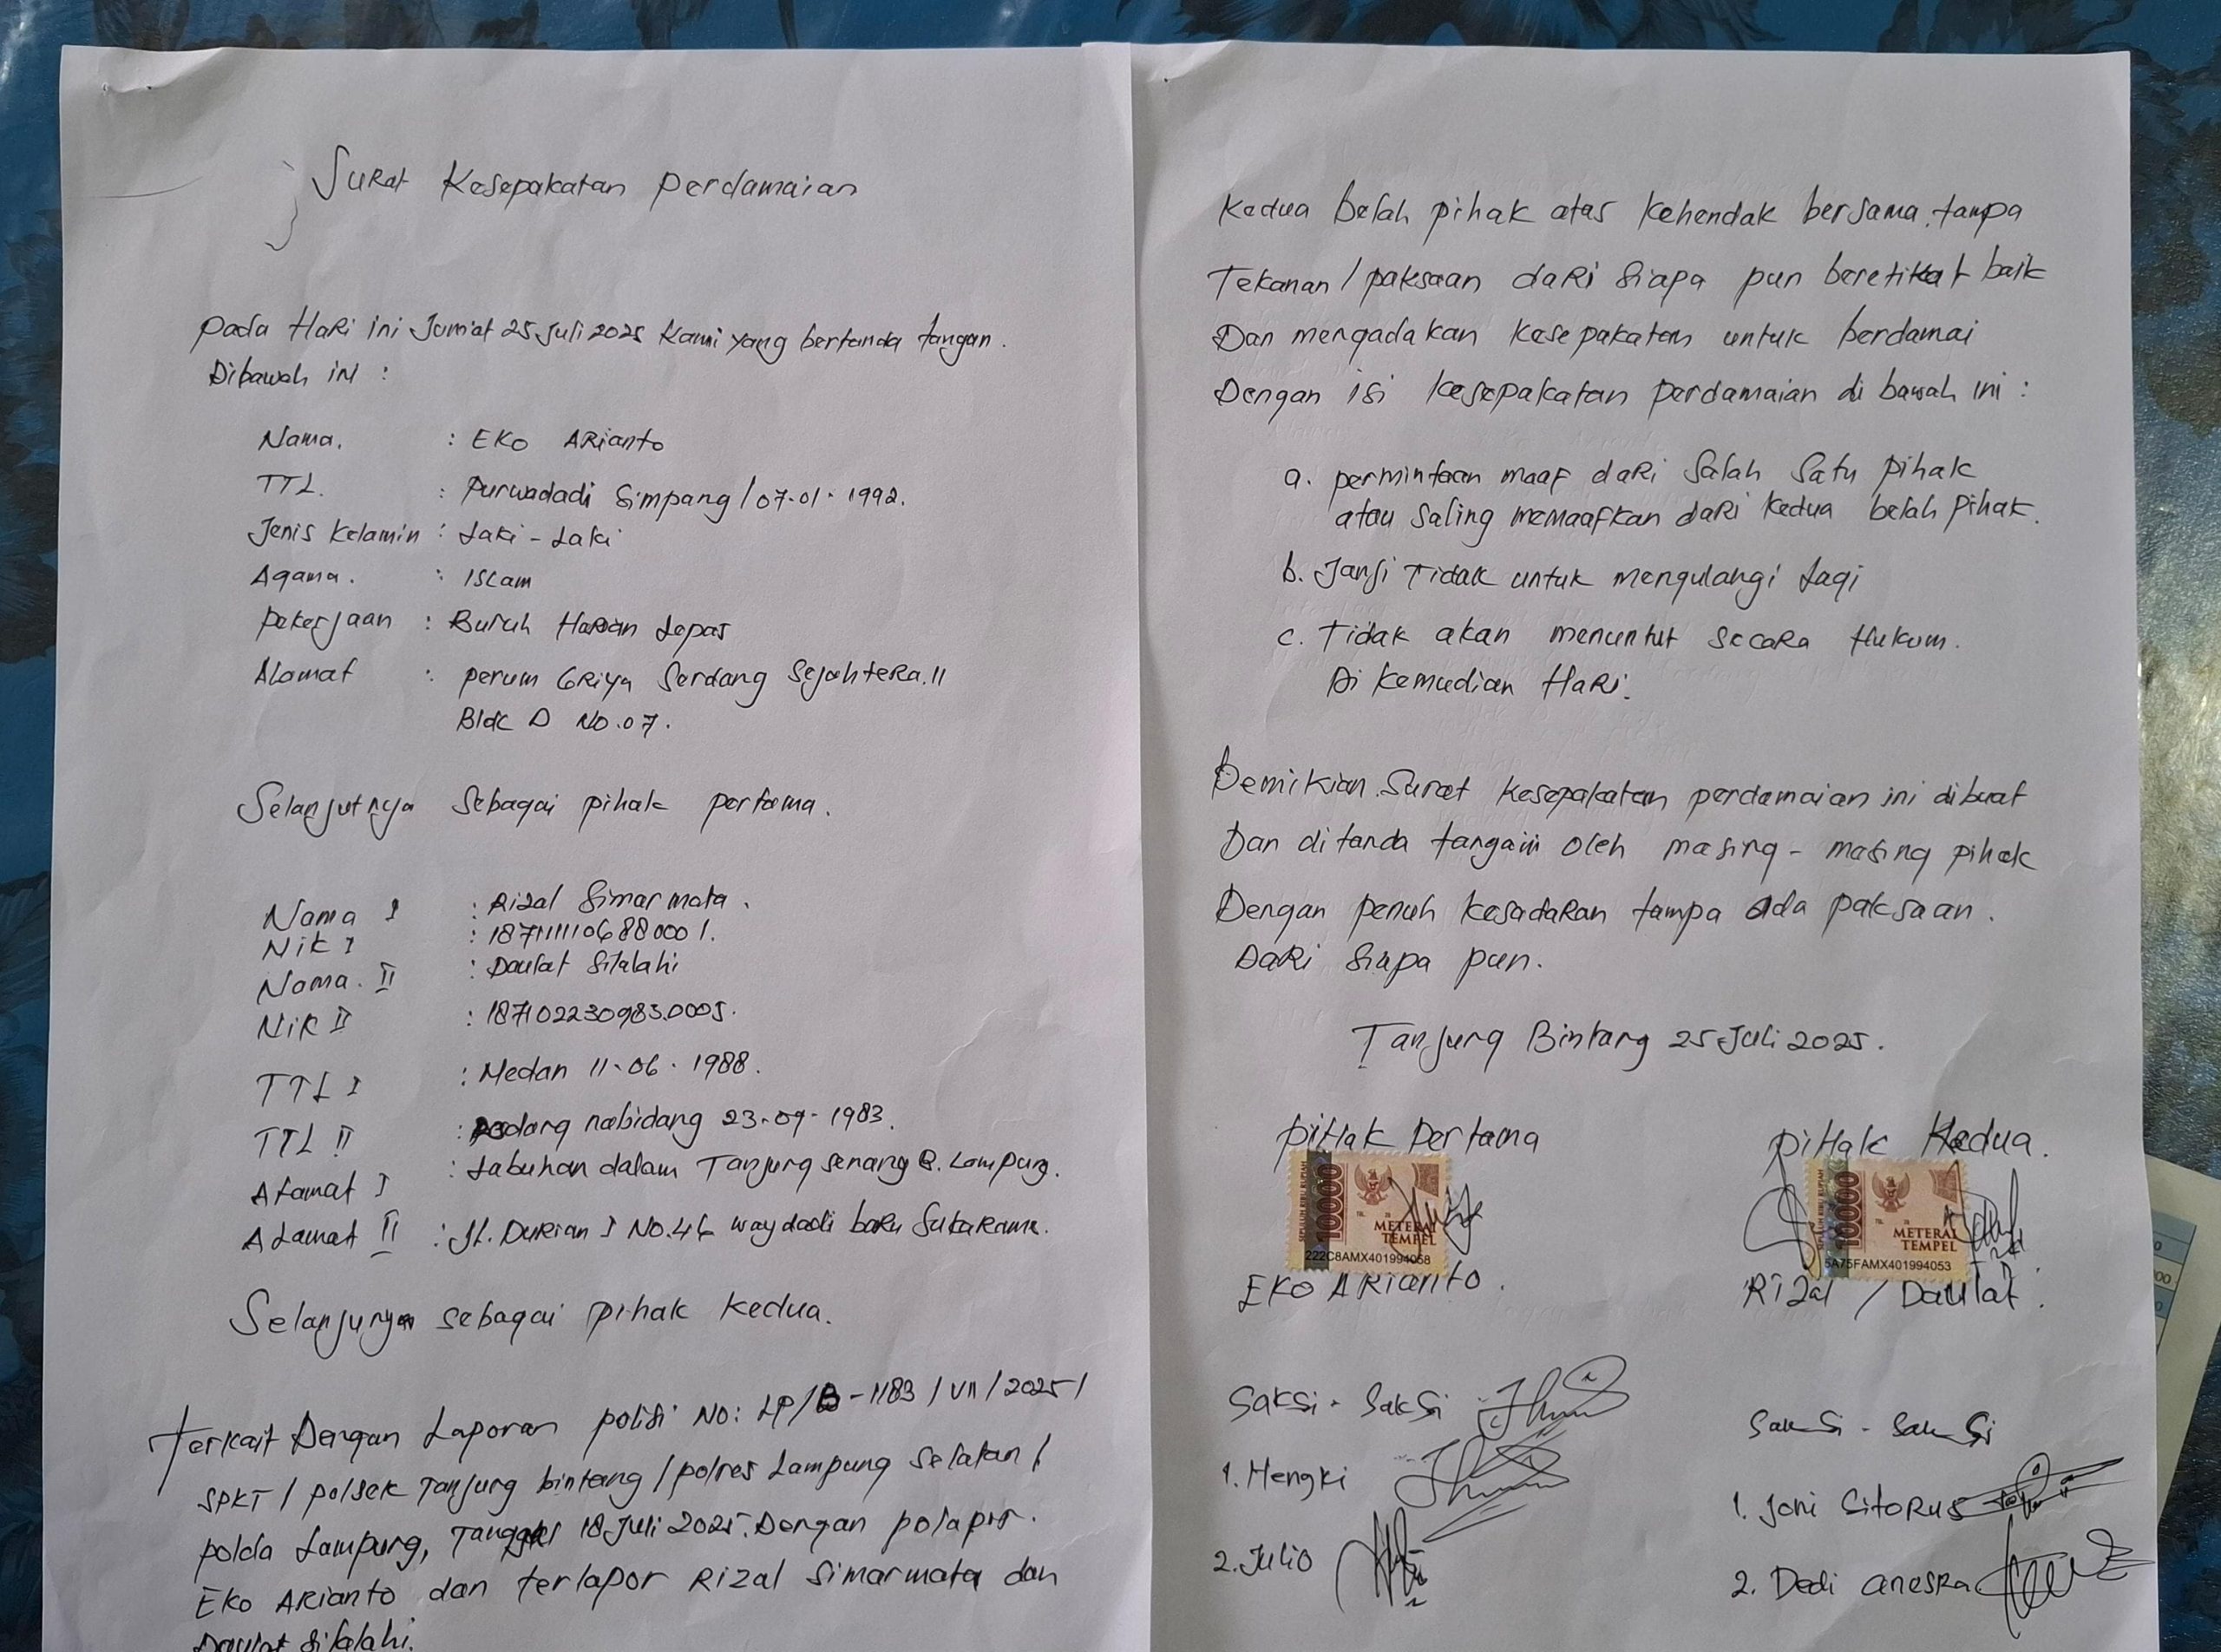 Surat Kesepakatan perdamaian
pada Hari ini Jum'at 25 Juli 2025 Kami yang bertanda tangan.
Dibawah ini :
Nama. : EKO ARianto
TTL. : Purwadadi Simpang / 07-01-1992.
Jenis Kelamin : Laki - Laki
Agama. : ISLam
pekerjaan : Buruh Harian Lepas
Alamat : perum GRiya Serdang SejahteRa.II
Blok D No.07.
Selanjutnya Sebagai pihak pertama.
Nama I : Rizal Simarmata.
Nik I : 1871111106880001.
Nama. II : Daulat Silalahi
Nik II : 187102230983.0005.
TTL I : Medan 11-06-1988.
TTL II : padang nabidang 23-09-1983.
Alamat I : Labuhan dalam Tanjung senang B. Lampung.
ALamat II : JL. DuRian I No.46 way dadi baRu SukaRame.
Selanjunya sebagai pihak Kedua.
Terkait Dengan Laporan polisi No: LP/B-1183/VII/2025/
SPKT / polsek Tanjung bintang / polres Lampung Selatan /
polda Lampung, Tanggal 18 Juli 2025. Dengan polapor.
Eko ARianto dan terlapor Rizal Simarmata dan
Daulat Silalahi.
Kedua belah pihak atas Kehendak bersama, tampa
Tekanan / paksaan daRi Siapa pun beretikat baik
Dan mengadakan Kesepakatan untuk berdamai
Dengan isi Kesepakatan perdamaian di bawah ini :
a. permintaan maaf daRi Salah Satu pihak
atau Saling memaafkan daRi Kedua belah pihak.
b. Janji Tidak untuk mengulangi Lagi
c. Tidak akan menuntut SecaRa Hukum.
Di Kemudian HaRi.
Demikian Surat Kesepakatan perdamaian ini dibuat
Dan di tanda tangani oleh masing - masing pihak
Dengan penuh KesadaRan tampa ada paksaan.
DaRi Siapa pun.
Tanjung Bintang 25 Juli 2025.
piHak Pertama
piHak Kedua.
SEPULUH RIBU RUPIAH
10000
METERAI
TEMPEL
222C8AMX401994058
10000
METERAI
TEMPEL
5A75FAMX401994053
EKO ARianto.
Rizal / Daulat.
Saksi - Saksi
1. Hengki
2. Julio
Saksi - Saksi
1. Joni SitoRus
2. Dedi